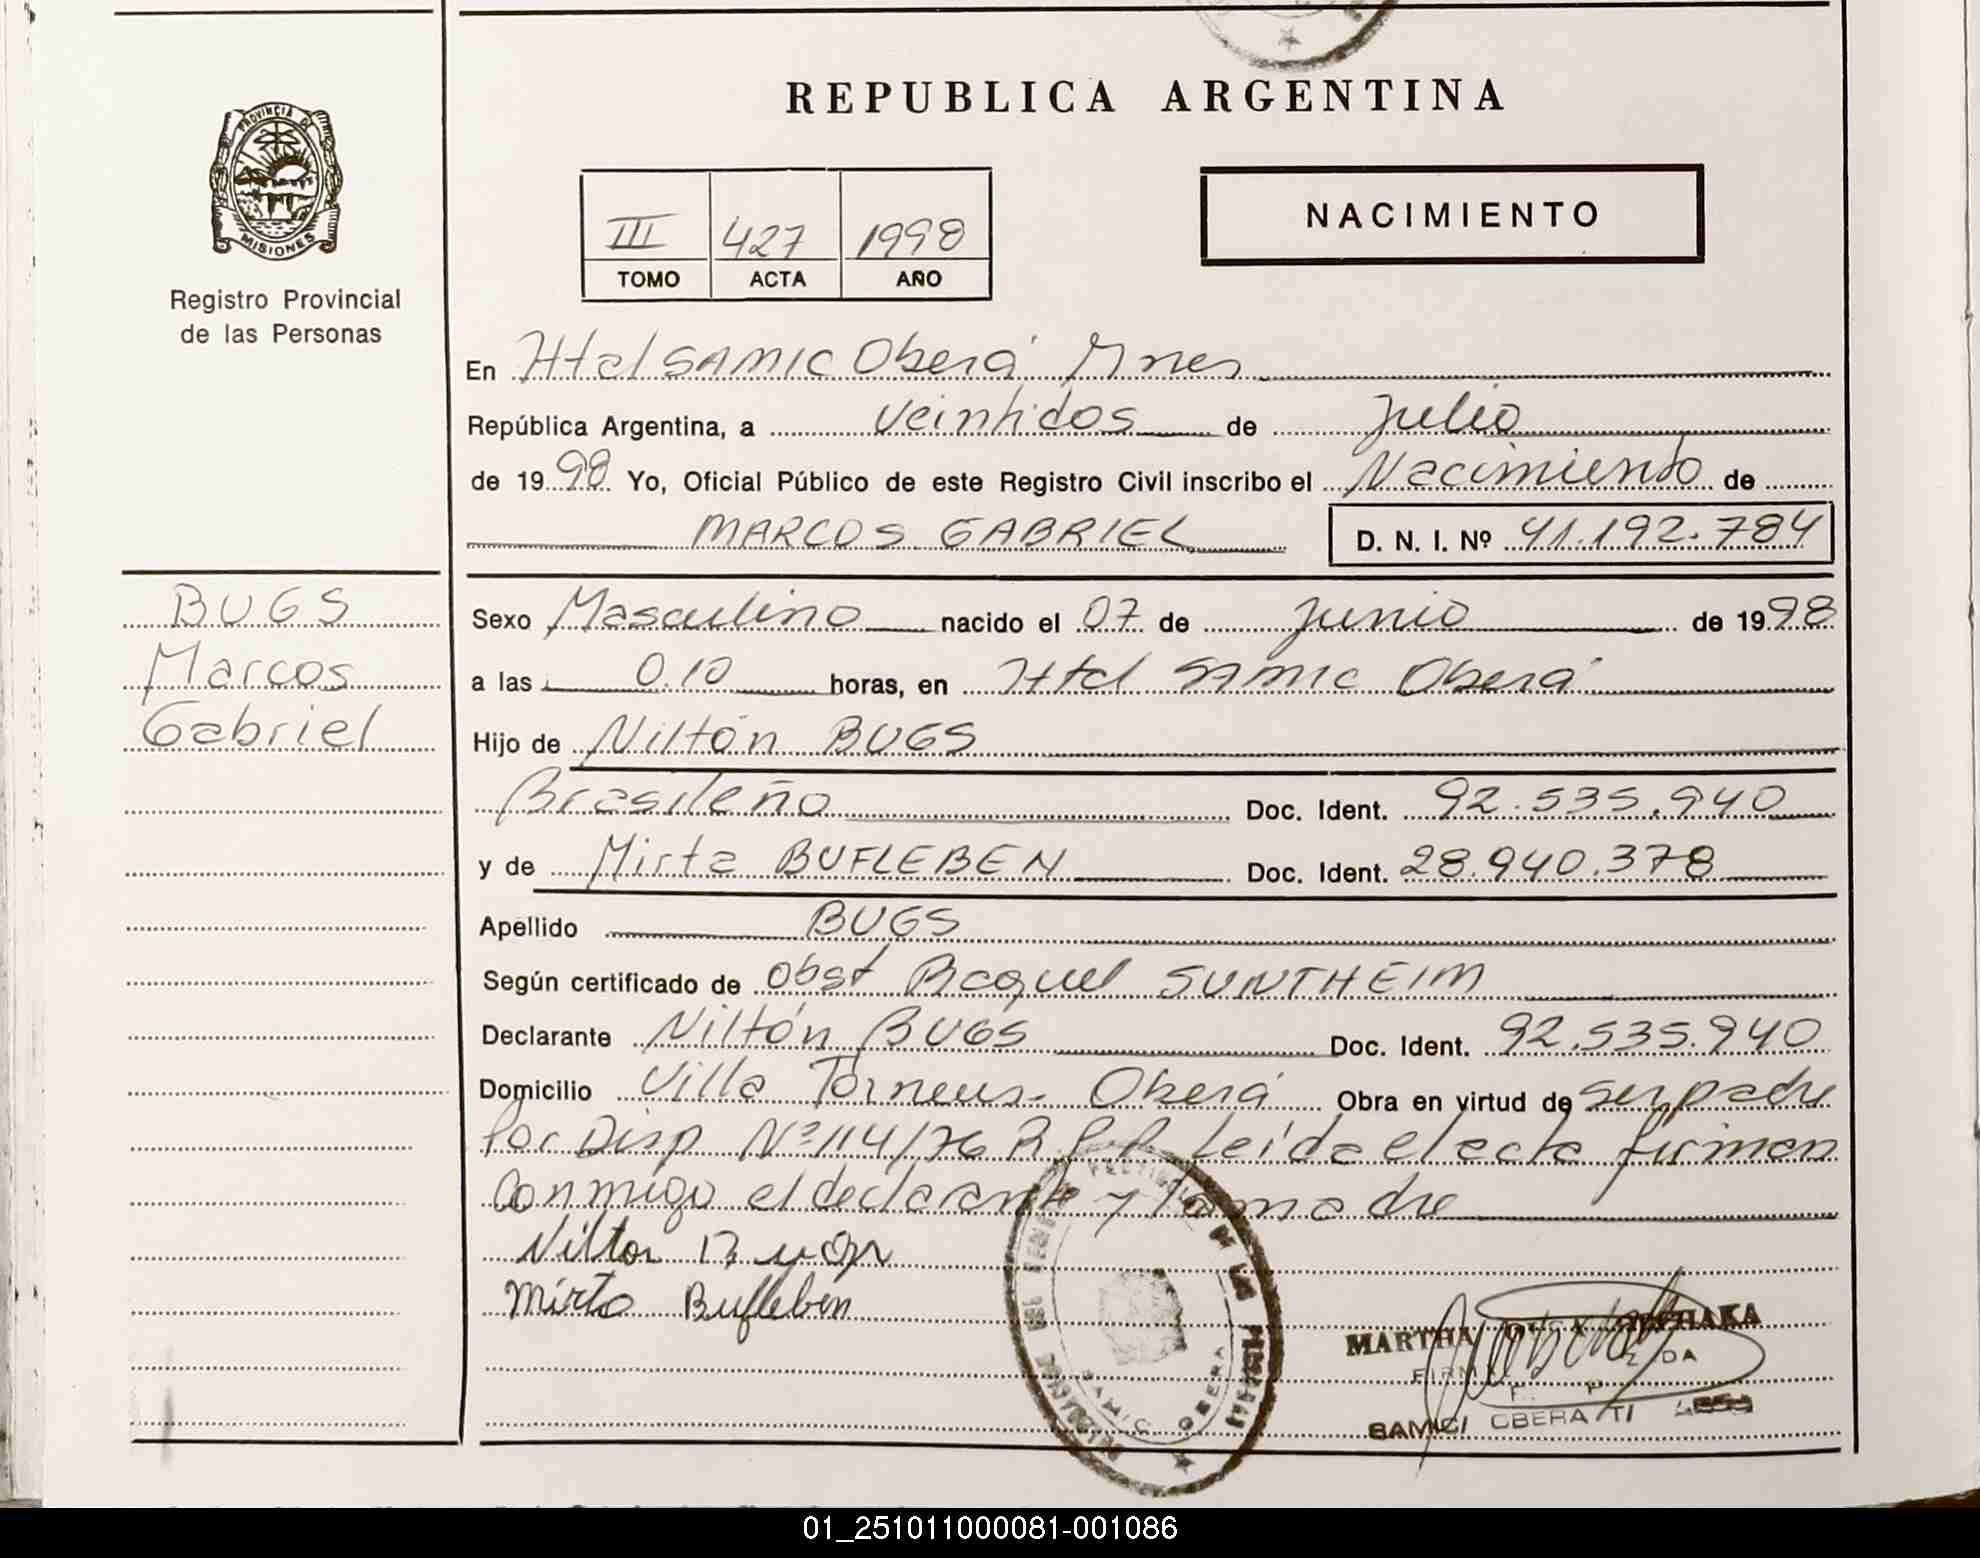 REPUBLICA ARGENTINA
PROVINCIA DE
MISIONES
Registro Provincial
de las Personas
III 427 1998
TOMO ACTA AÑO
NACIMIENTO
En Htal SAMIC Oberá Mnes
República Argentina, a veintidos de Julio
de 1998 Yo, Oficial Público de este Registro Civil inscribo el Nacimiento de
MARCOS GABRIEL D. N. I. Nº 41.192.784
BUGS
Marcos
Gabriel
Sexo Masculino nacido el 07 de Junio de 1998
a las 0.10 horas, en Htal SAMIC Oberá
Hijo de Niltón BUGS
Brasileño Doc. Ident. 92.535.940
y de Mirta BUFLEBEN Doc. Ident. 28.940.378
Apellido BUGS
Según certificado de Obst Raquel SUNTHEIM
Declarante Niltón BUGS Doc. Ident. 92.535.940
Domicilio Villa Torneus- Oberá Obra en virtud de ser padre
Por Disp Nº 114/76 R.P.P. Leída el acta firman
Conmigo el declarante y la madre
Nilton
Mirta Bufleben
MARTHA
SAMIC OBERA
SAMIC OBERA
01_251011000081-001086